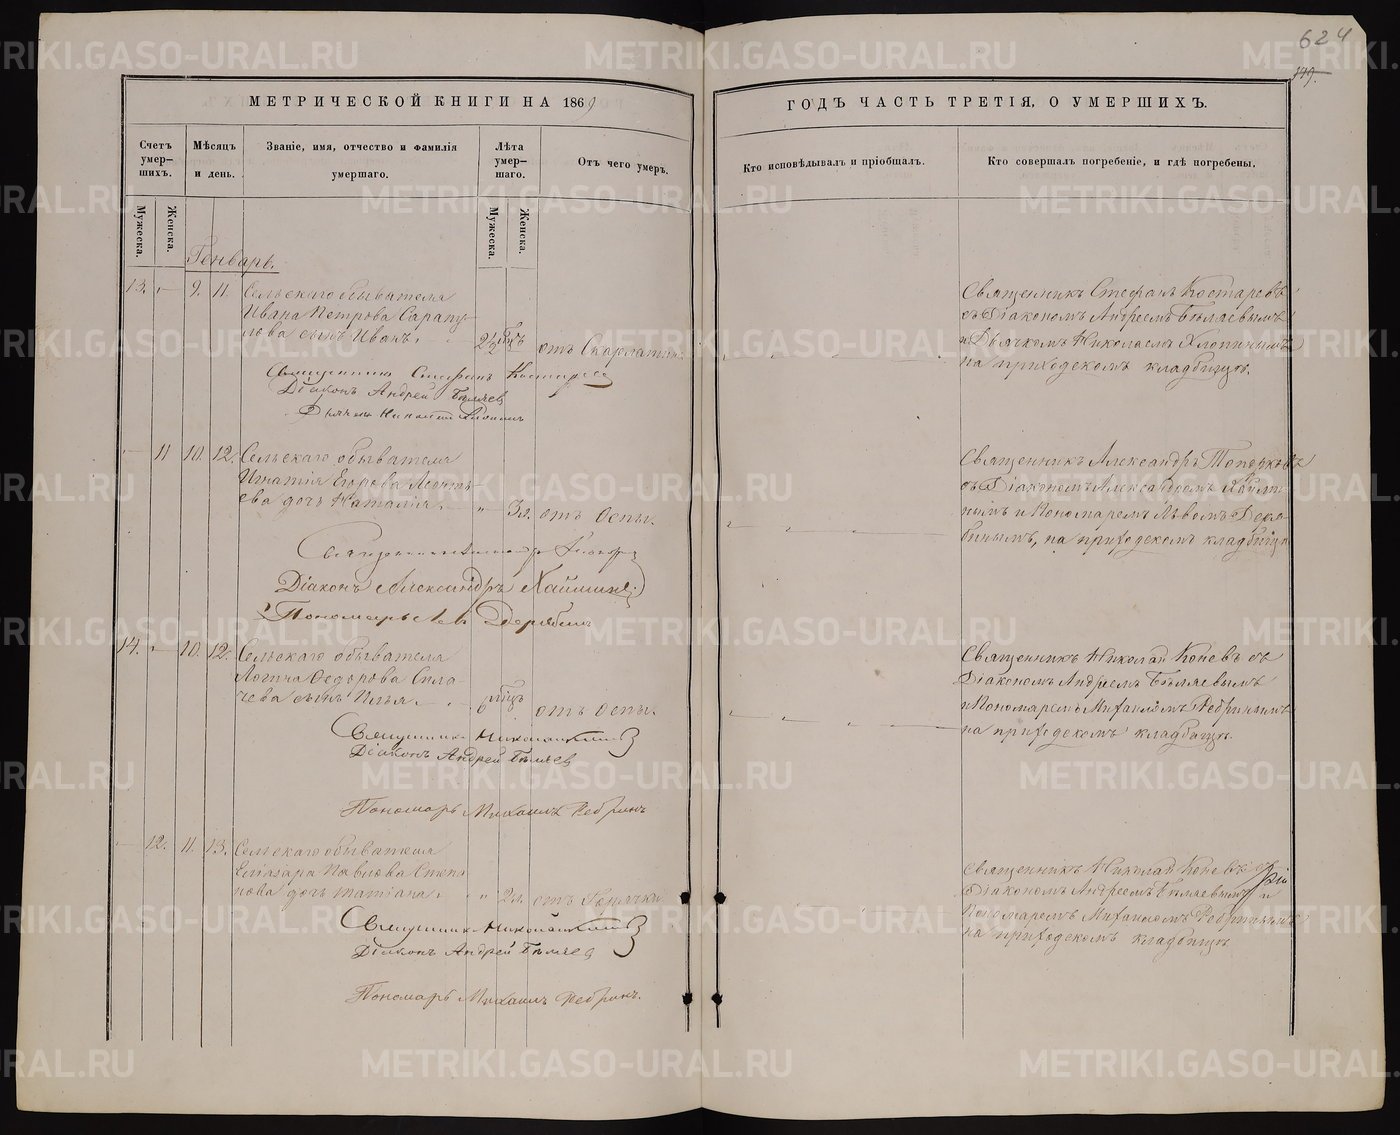 624
МЕТРИЧЕСКОЙ КНИГИ НА 1869
ГОДЪ ЧАСТЬ ТРЕТІЯ, О УМЕРШИХЪ.
Счетъ умер-шихъ.
Мѣсяцъ и день.
Званіе, имя, отчество и фамилія умершаго.
Лѣта умер-шаго.
Отъ чего умеръ.
Кто исповѣдывалъ и пріобщалъ.
Кто совершалъ погребеніе, и гдѣ погребены.
Мужеска.
Женска.
Мужеска.
Женска.
Генварь.
13. 9. 11. Сельскаго обывателя
Ивана Петрова Сарапу-
лова сынъ Иванъ. 2½ отъ Скарлатины
Священникъ Стефанъ Костаревъ
съ Діакономъ Андреемъ Бѣляевымъ
и Дьячкомъ Николаемъ Хлопинымъ
на приходскомъ кладбищѣ.
Священникъ Стефанъ Костаревъ
Діаконъ Андрей Бѣляев
11 10. 12. Сельскаго обывателя
Игнатія Егорова Леонть-
ева дочь Наталія. " 3 л. отъ Оспы.
Священникъ Александръ Топорковъ
съ Діакономъ Александромъ
и Пономаремъ Львомъ Деря-
бинымъ, на приходскомъ кладбищѣ
Діаконъ Александръ
Пономарь Лев Дерябин
14. 10. 12. Сельскаго обывателя
Логина Федорова Сила-
чева сынъ Илья. 6 мѣц. отъ Оспы.
Священникъ Николай Коневъ съ
Діакономъ Андреемъ Бѣляевымъ
и Пономаремъ Михаиломъ Ребринымъ
на приходскомъ кладбищѣ.
Священникъ Николай Коневъ
Діаконъ Андрей Бѣляев
Пономарь Михаилъ Ребринъ
12. 11. 13. Сельскаго обывателя
Елизара Павлова Степа-
нова дочь Татіана. " 2 л. отъ Горячки
Священникъ Николай Коневъ съ
Діакономъ Андреемъ Бѣляевымъ и
Пономаремъ Михаиломъ Ребринымъ
на приходскомъ кладбищѣ
Священникъ Николай Коневъ
Діаконъ Андрей Бѣляев
Пономарь Михаилъ Ребринъ.
METRIKI.GASO-URAL.RU